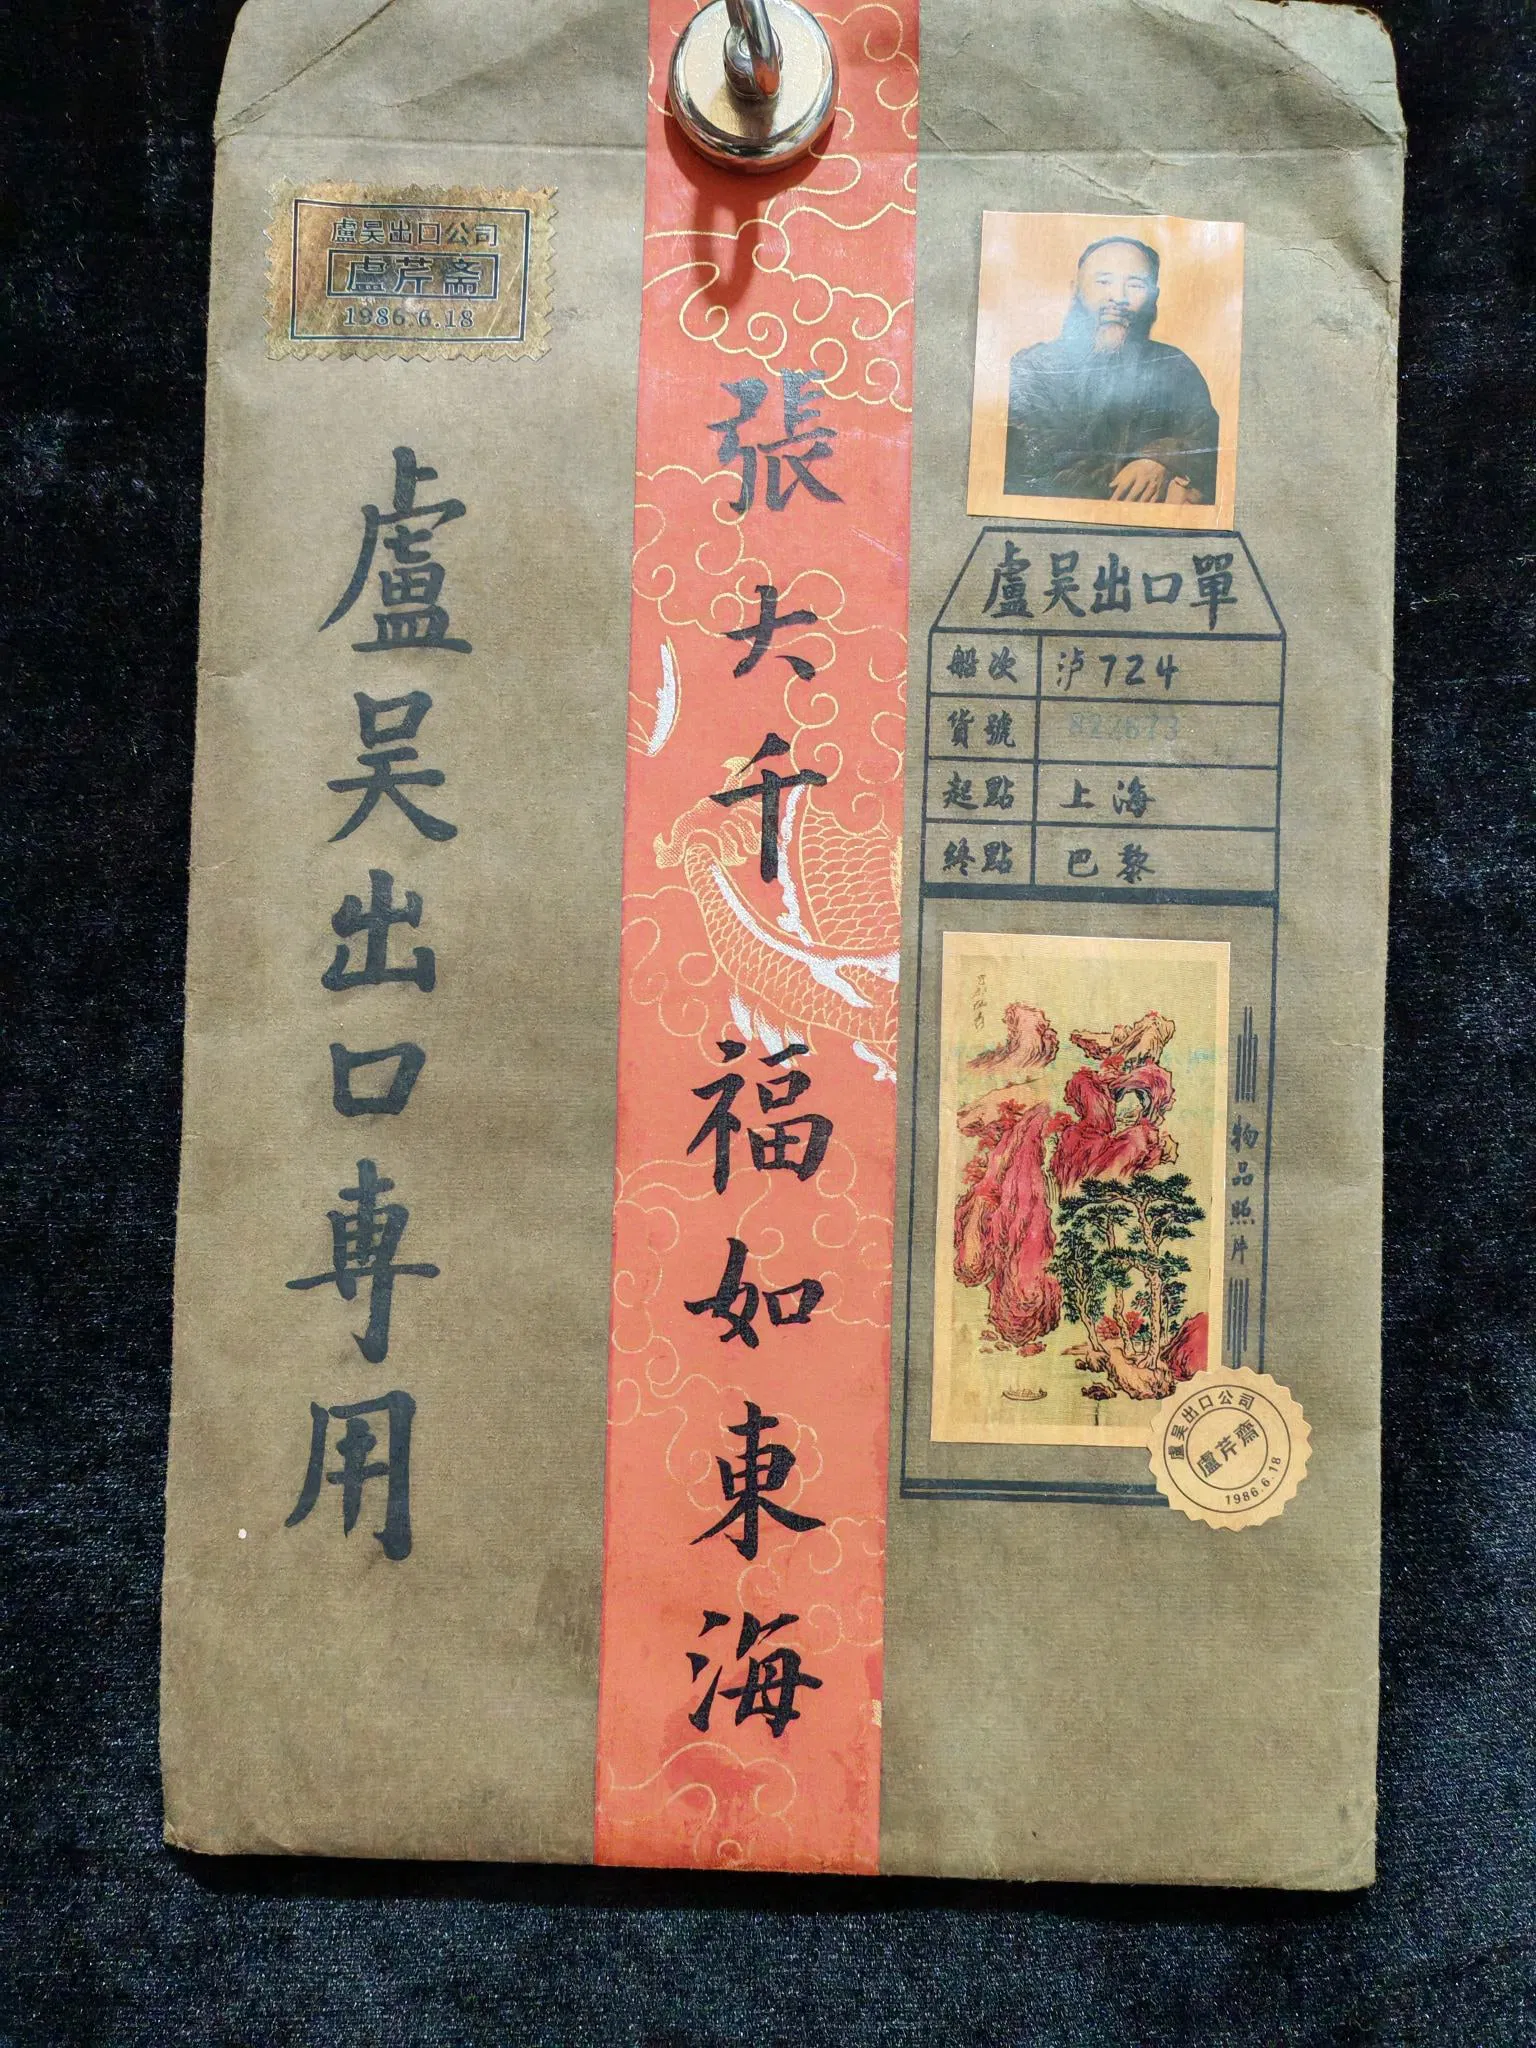 盧吴出口公司
盧芹斋
1986.6.18
盧吴出口專用
張大千 福如東海
盧吴出口單
船次 泸724
貨號
起點 上海
終點 巴黎
物品照片
盧吴出口公司
盧芹齋
1986.6.18